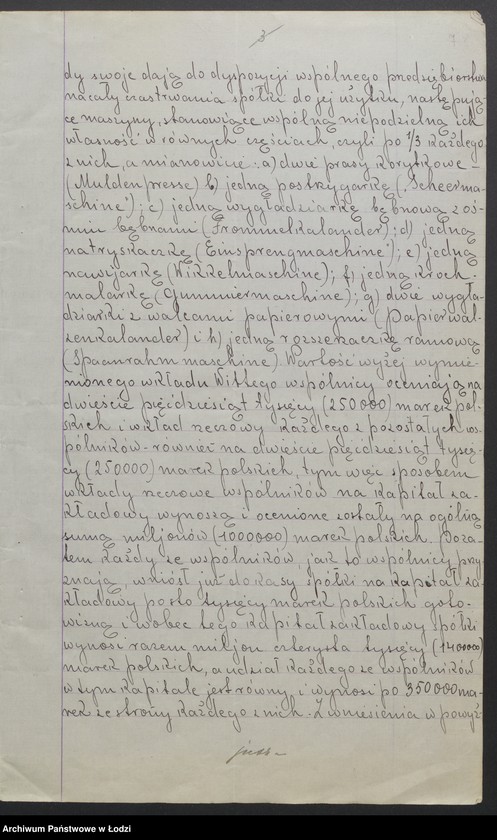 3
dy swoje dają do dyspozycji wspólnego przedsiębiorstwa
na cały czas trwania spółki do jej użytku, następują-
ce maszyny, stanowiące wspólną niepodzielną ich
własność w równych częściach, czyli po 1/3 każdego
z nich, a mianowicie: a) dwie prasy korytkowe -
(Muldenpresse) b) jedną postrzygarkę ("Scheerma-
schine"); c) jedną wygładziarkę bębnową z oś-
miu bębnami (Trommelkalander); d) jedną
natryskaczkę (Einsprengmaschine); e) jedną
nawijarkę (Wikkelmaschine); f) jedną kroch-
malarkę (Gummiermaschine); g) dwie wygła-
dziarki z walcami papierowymi (Papierwal-
zenkalander) i h) jedną rozszerzaczkę ramową
(Spannrahmmaschine). Wartość wyżej wymie-
nionego wkładu Wittego wspólnicy oceniają na
dwieście pięćdziesiąt tysięcy (250000) marek pol-
skich i wkład rzeczowy każdego z pozostałych ws-
pólników - również na dwieście pięćdziesiąt tysię-
cy (250000) marek polskich, tym więc sposobem
wkłady rzeczowe wspólników na kapitał za-
kładowy wynoszą i ocenione zostały na ogólną
sumę miljonów (1000000) marek polskich. Poza-
tem każdy ze wspólników, jak to wspólnicy przy-
znają, wniósł już do kasy spółki na kapitał za-
kładowy po sto tysięcy marek polskich goto-
wizną i wobec tego kapitał zakładowy spółki
wynosi razem miljon czterysta tysięcy (1400000)
marek polskich, a udział każdego ze wspólników
w tym kapitale jest równy i wynosi po 350000 ma-
rek ze strony każdego z nich. Z wniesienia w powyż-
Archiwum Państwowe w Łodzi